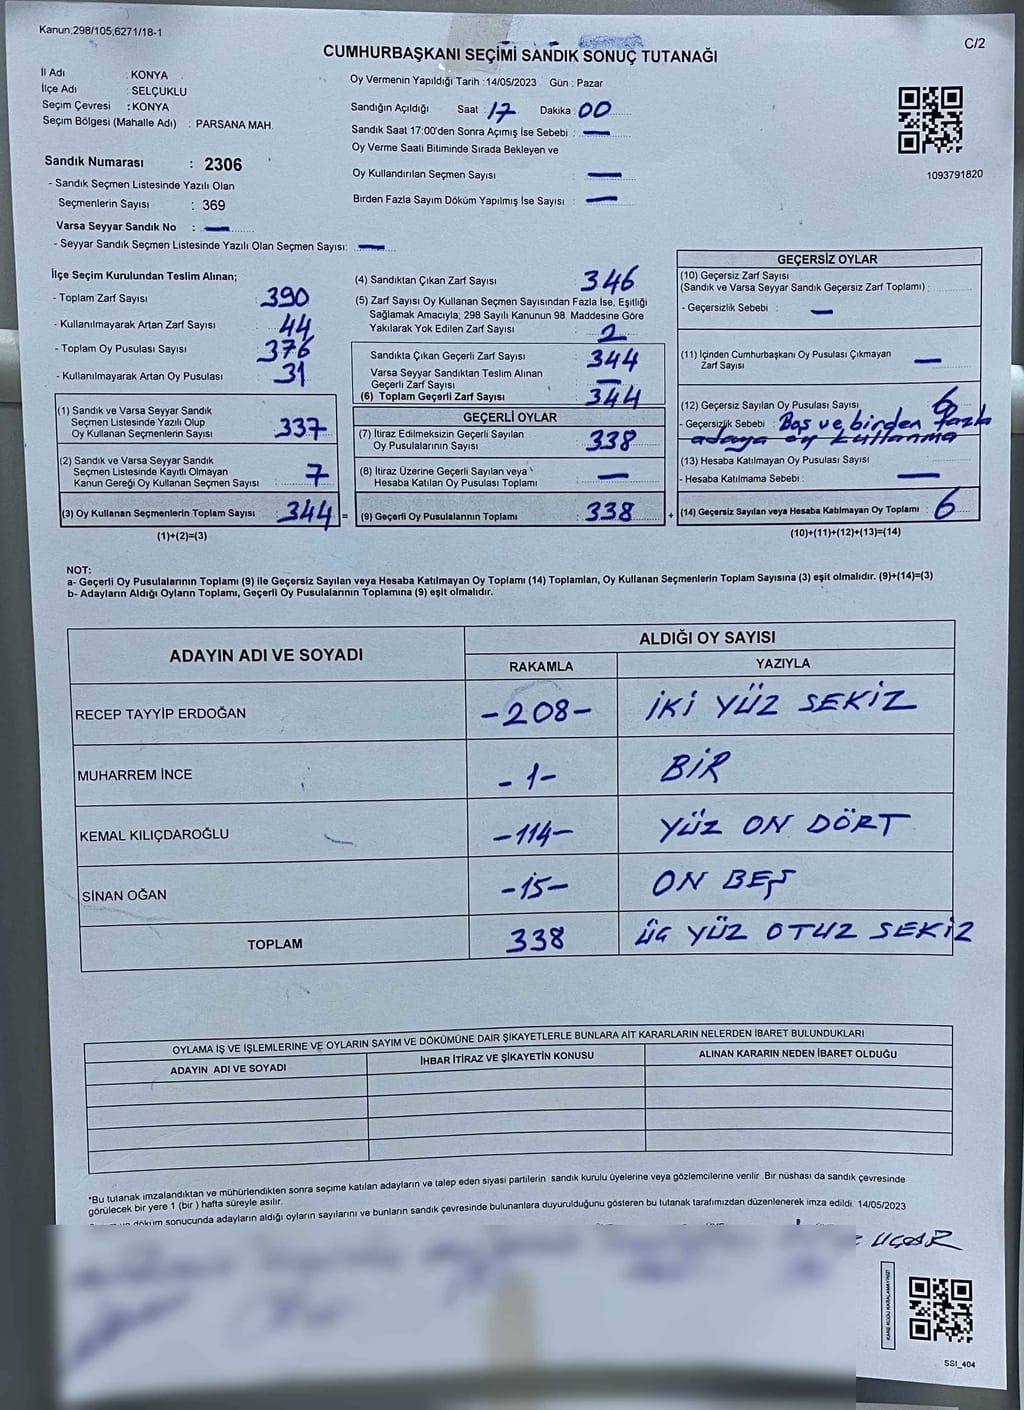 Kanun;298/105,6271/18-1
C/2
CUMHURBAŞKANI SEÇİMİ SANDIK SONUÇ TUTANAĞI
İl Adı : KONYA
İlçe Adı : SELÇUKLU
Seçim Çevresi : KONYA
Seçim Bölgesi (Mahalle Adı) : PARSANA MAH.
Oy Vermenin Yapıldığı Tarih : 14/05/2023 Gün : Pazar
Sandığın Açıldığı Saat : 17 Dakika : 00
Sandık Saat 17:00'den Sonra Açımış İse Sebebi : —
Oy Verme Saati Bitiminde Sırada Bekleyen ve
Oy Kullandırılan Seçmen Sayısı : —
Birden Fazla Sayım Döküm Yapılmış İse Sayısı : —
1093791820
Sandık Numarası : 2306
- Sandık Seçmen Listesinde Yazılı Olan
Seçmenlerin Sayısı : 369
Varsa Seyyar Sandık No : —
- Seyyar Sandık Seçmen Listesinde Yazılı Olan Seçmen Sayısı: —
İlçe Seçim Kurulundan Teslim Alınan;
- Toplam Zarf Sayısı : 390
- Kullanılmayarak Artan Zarf Sayısı : 44
- Toplam Oy Pusulası Sayısı : 376
- Kullanılmayarak Artan Oy Pusulası : 31
(1) Sandık ve Varsa Seyyar Sandık
Seçmen Listesinde Yazılı Olup
Oy Kullanan Seçmenlerin Sayısı : 337
(2) Sandık ve Varsa Seyyar Sandık
Seçmen Listesinde Kayıtlı Olmayan
Kanun Gereği Oy Kullanan Seçmen Sayısı : 7
(3) Oy Kullanan Seçmenlerin Toplam Sayısı : 344 =
(1)+(2)=(3)
(4) Sandıktan Çıkan Zarf Sayısı : 346
(5) Zarf Sayısı Oy Kullanan Seçmen Sayısından Fazla İse, Eşitliği
Sağlamak Amacıyla; 298 Sayılı Kanunun 98. Maddesine Göre
Yakılarak Yok Edilen Zarf Sayısı : 2
Sandıkta Çıkan Geçerli Zarf Sayısı : 344
Varsa Seyyar Sandıktan Teslim Alınan
Geçerli Zarf Sayısı : —
(6) Toplam Geçerli Zarf Sayısı : 344
GEÇERLİ OYLAR
(7) İtiraz Edilmeksizin Geçerli Sayılan
Oy Pusulalarının Sayısı : 338
(8) İtiraz Üzerine Geçerli Sayılan veya
Hesaba Katılan Oy Pusulası Toplamı : —
(9) Geçerli Oy Pusulalarının Toplamı : 338 +
GEÇERSİZ OYLAR
(10) Geçersiz Zarf Sayısı
(Sandık ve Varsa Seyyar Sandık Geçersiz Zarf Toplamı) :
- Geçersizlik Sebebi : —
(11) İçinden Cumhurbaşkanı Oy Pusulası Çıkmayan
Zarf Sayısı : —
(12) Geçersiz Sayılan Oy Pusulası Sayısı : 6
- Geçersizlik Sebebi : Boş ve birden fazla
adaya oy kullanma
(13) Hesaba Katılmayan Oy Pusulası Sayısı :
- Hesaba Katılmama Sebebi : —
(14) Geçersiz Sayılan veya Hesaba Katılmayan Oy Toplamı : 6
(10)+(11)+(12)+(13)=(14)
NOT:
a- Geçerli Oy Pusulalarının Toplamı (9) ile Geçersiz Sayılan veya Hesaba Katılmayan Oy Toplamı (14) Toplamları, Oy Kullanan Seçmenlerin Toplam Sayısına (3) eşit olmalıdır. (9)+(14)=(3)
b- Adayların Aldığı Oyların Toplamı, Geçerli Oy Pusulalarının Toplamına (9) eşit olmalıdır.
ADAYIN ADI VE SOYADI
ALDIĞI OY SAYISI
RAKAMLA YAZIYLA
RECEP TAYYİP ERDOĞAN -208- İKİ YÜZ SEKİZ
MUHARREM İNCE -1- BİR
KEMAL KILIÇDAROĞLU -114- YÜZ ON DÖRT
SİNAN OĞAN -15- ON BEŞ
TOPLAM 338 ÜÇ YÜZ OTUZ SEKİZ
OYLAMA İŞ VE İŞLEMLERİNE VE OYLARIN SAYIM VE DÖKÜMÜNE DAİR ŞİKAYETLERLE BUNLARA AİT KARARLARIN NELERDEN İBARET BULUNDUKLARI
ADAYIN ADI VE SOYADI İHBAR İTİRAZ VE ŞİKAYETİN KONUSU ALINAN KARARIN NEDEN İBARET OLDUĞU
*Bu tutanak imzalandıktan ve mühürlendikten sonra seçime katılan adayların ve talep eden siyasi partilerin sandık kurulu üyelerine veya gözlemcilerine verilir. Bir nüshası da sandık çevresinde
görülecek bir yere 1 (bir) hafta süreyle asılır.
döküm sonucunda adayların aldığı oyların sayılarını ve bunların sandık çevresinde bulunanlara duyurulduğunu gösteren bu tutanak tarafımızdan düzenlenerek imza edildi. 14/05/2023
UÇAR
SSI_404